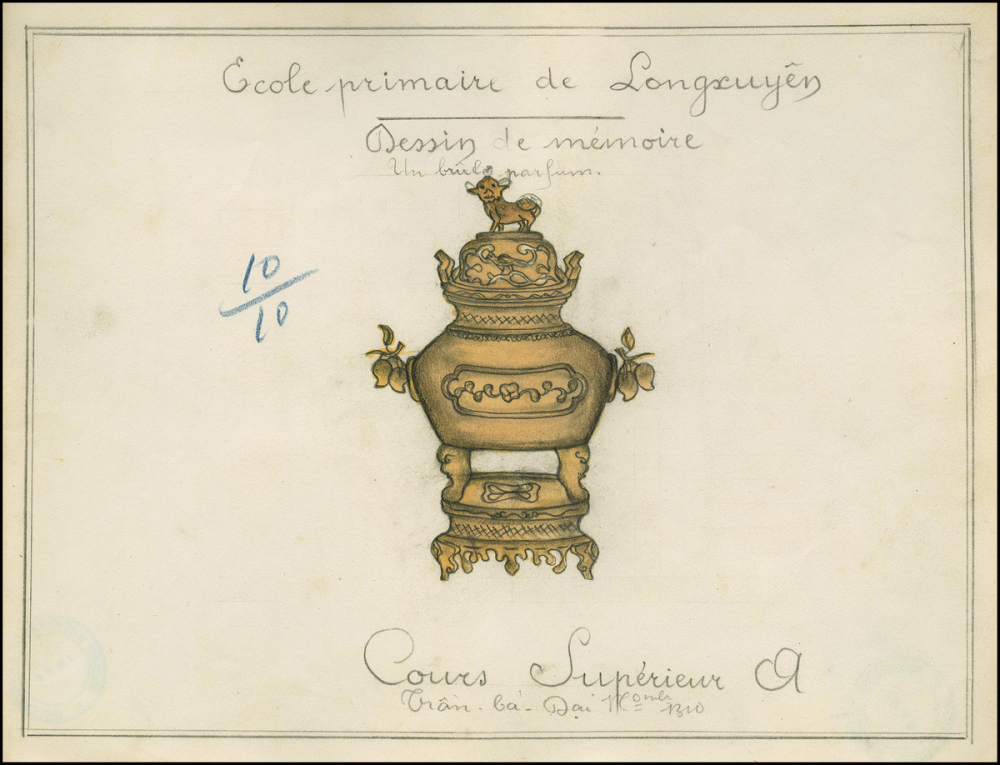 Ecole primaire de Longxuyên
Dessin de mémoire
Un brûle parfum.
10
10
Cours Supérieur A
Trân-bá-Dai